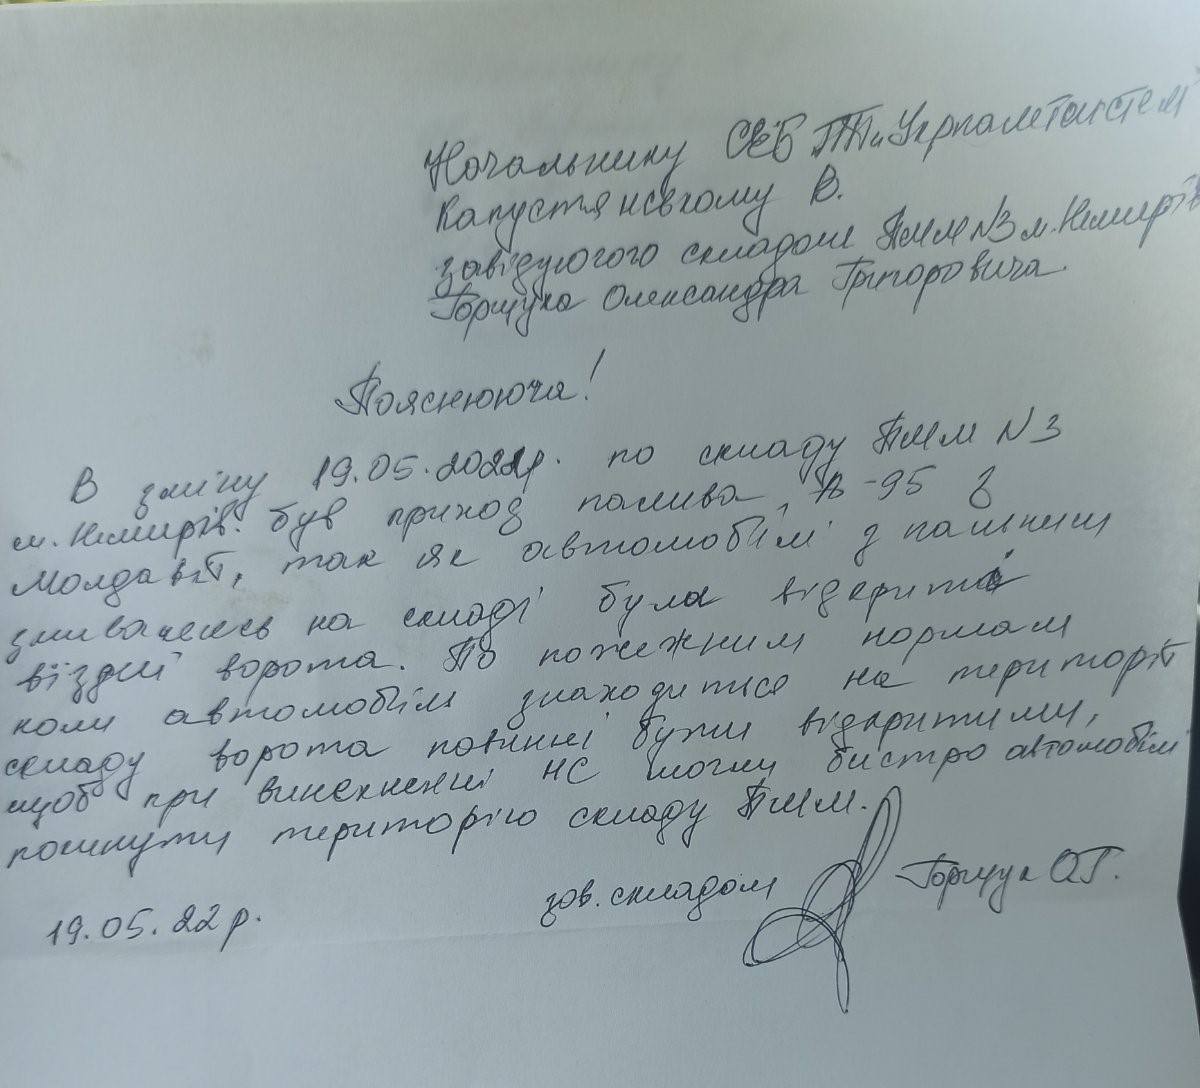 Начальнику СЕБ ПТ "Укрпалетсистем
Капустянському В.
завідуючого складом ПММ N3 м. Немирів
Горщука Олександра Григоровича.
Пояснююча!
В зміну 19.05.2022р. по складу ПММ N3
м. Немирів. був приход палива, А-95 з
Молдавії, так як автомобілі з пальним
зливались на складі була відкриті
вїздні ворота. По пожежним нормам
коли автомобілі знаходиться на території
складу ворота повинні бути відкритими,
щоб при виникненні НС могли бистро автомобілі
покинути територію складу ПММ.
зав. складом Горщук О.Г.
19.05.22р.